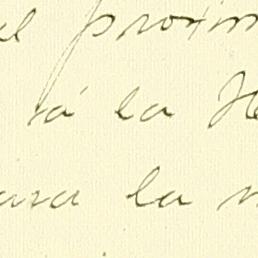 el proxim
rá la He
ara la n